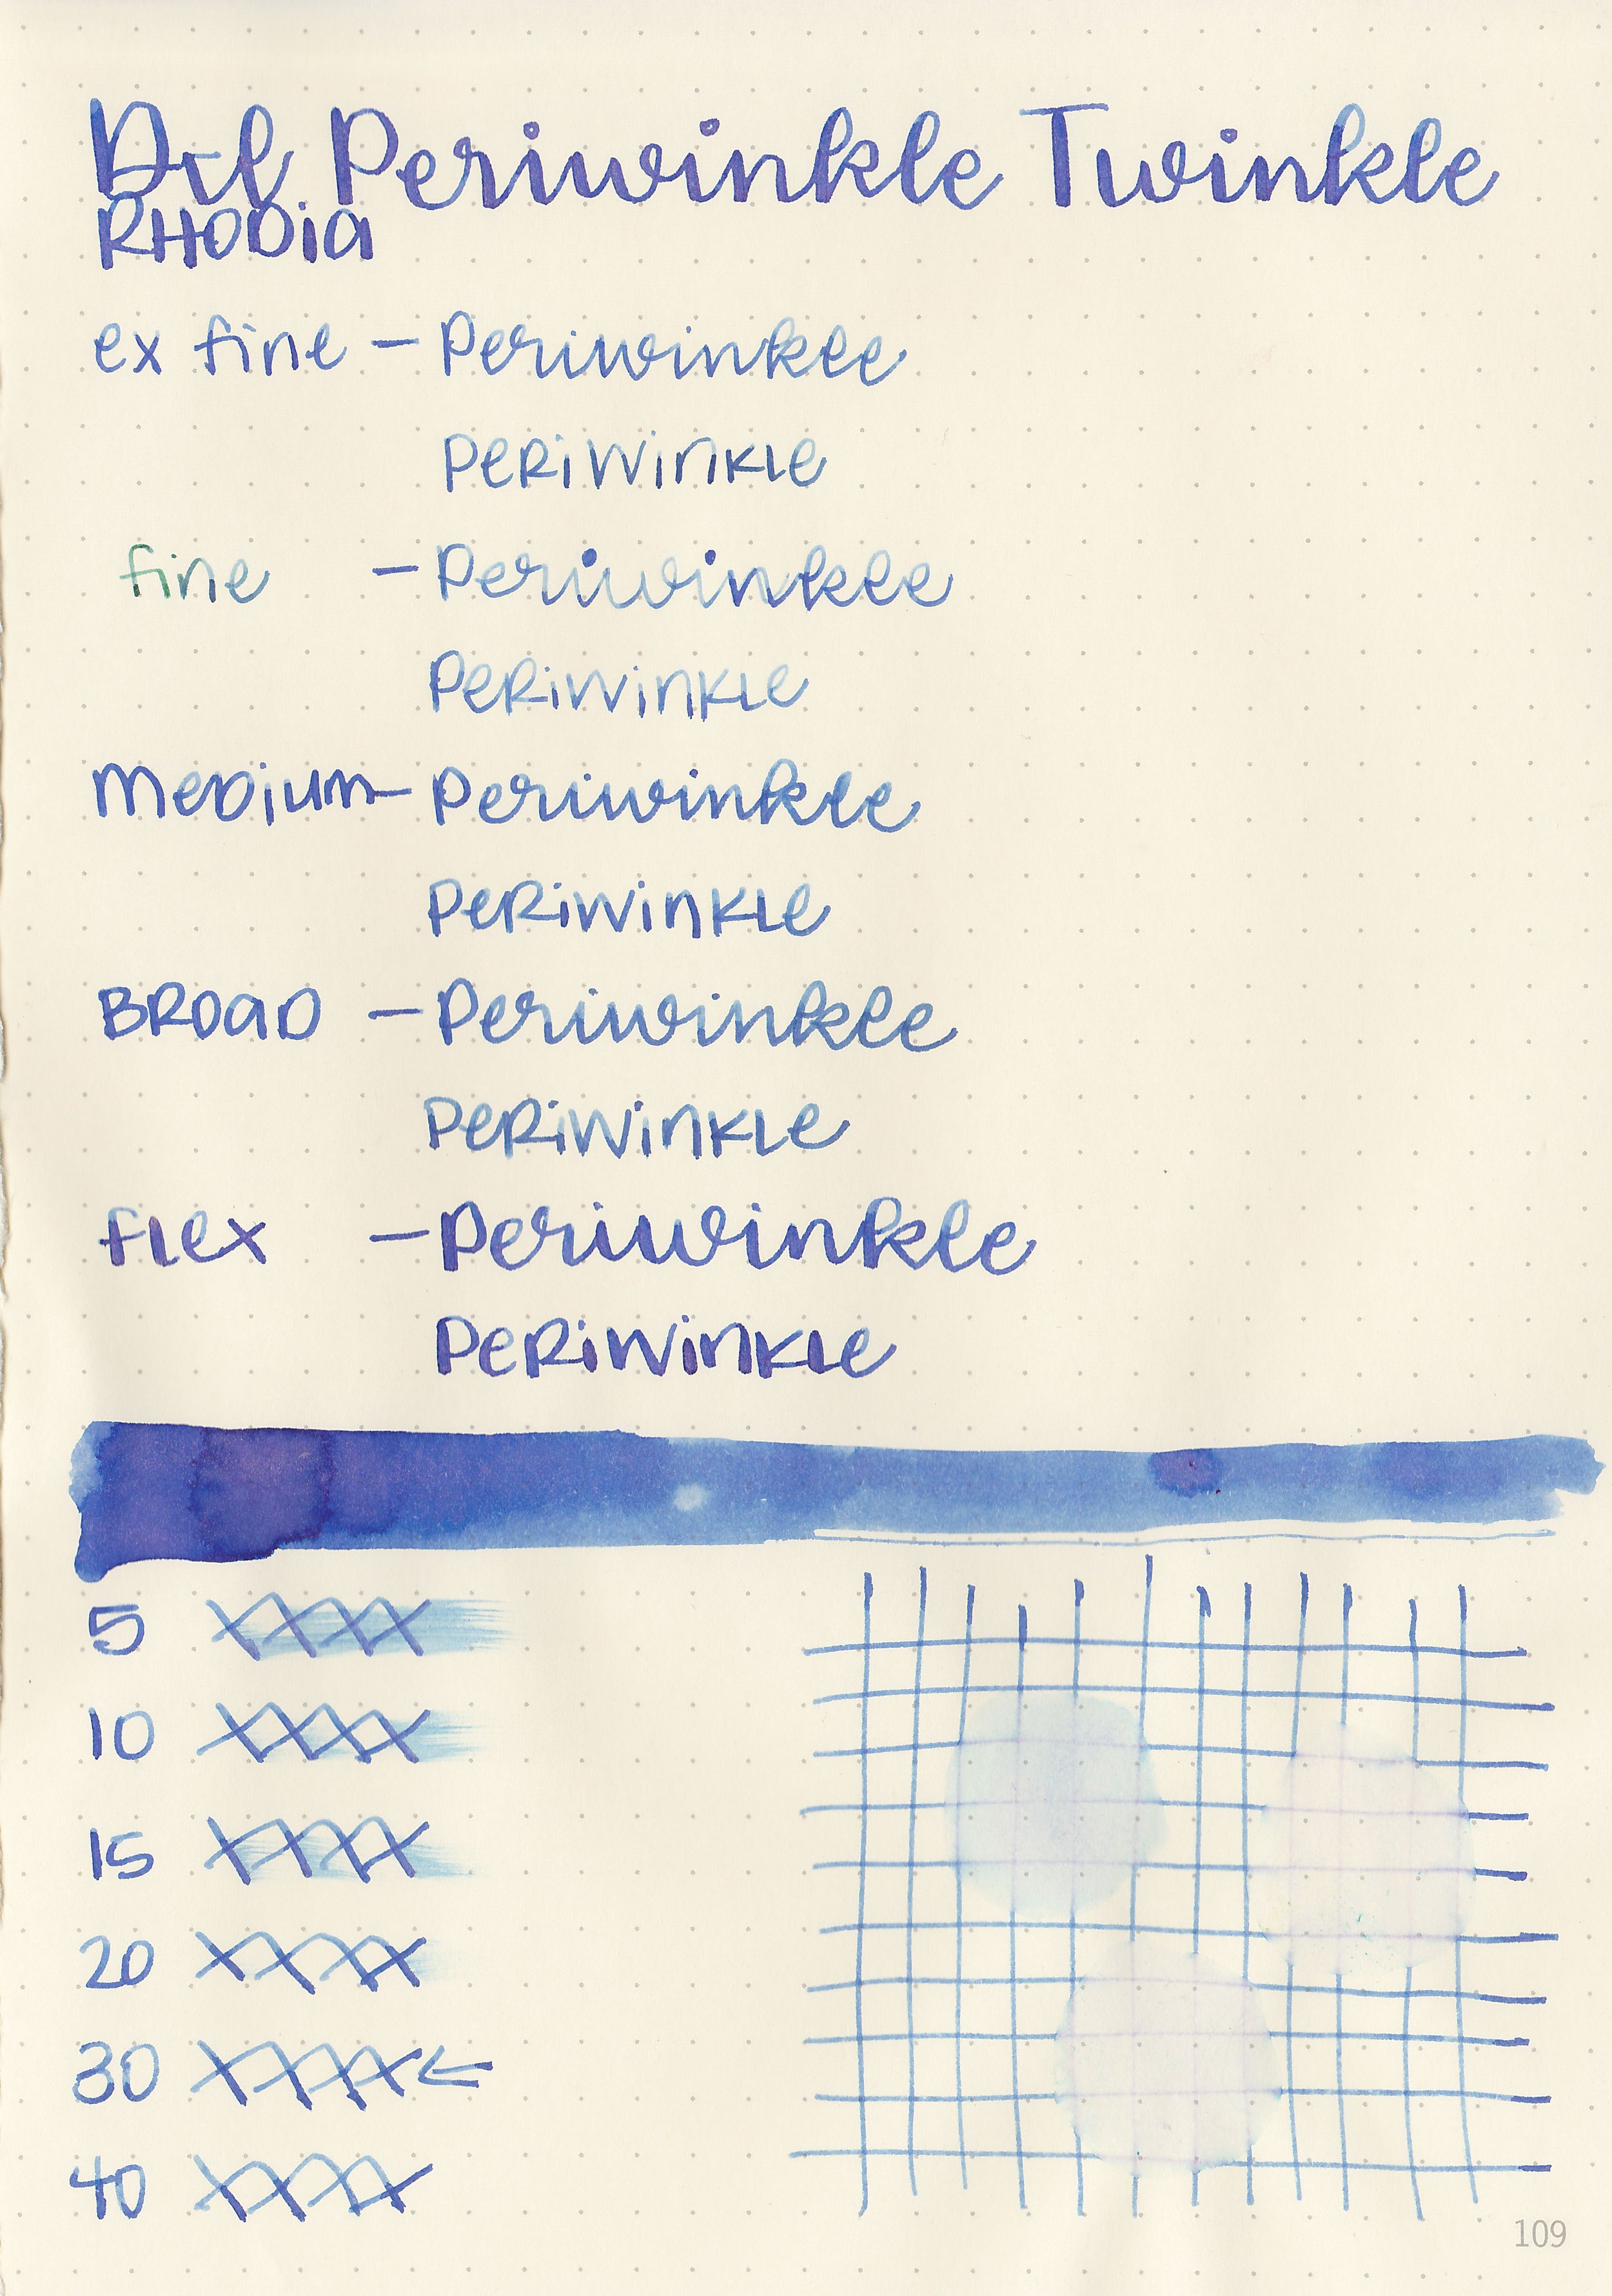 Dvl Periwinkle Twinkle
RHODia
ex fine - Periwinkle
PeRiWinKLe
fine - Periwinkle
PeRiWinKLe
MeDium - Periwinkle
PeRiWinKLe
BROaD - Periwinkle
PeRiWinKLe
fLex - Periwinkle
PeRiWinKLe
5 XXXX
10 XXXX
15 XXXX
20 XXXX
30 XXXX ←
40 XXXX
109